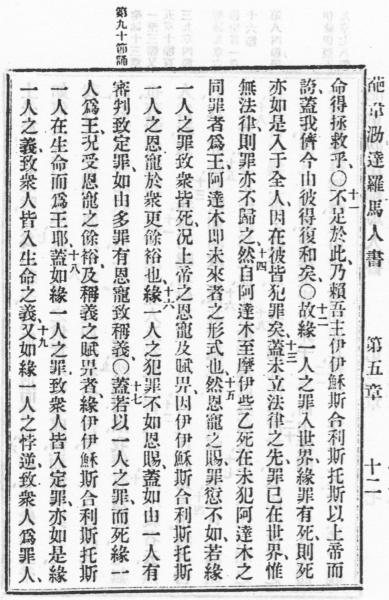 葩韋泐達羅馬人書 第五章 十二
十一
命得拯救乎、○不足於此、乃賴吾主伊伊穌斯合利斯托斯以上帝而
十二
誇、蓋我儕今由彼得復和矣、○故緣一人之罪入世界、緣罪有死、則死
十三
亦如是入于全人、因在彼皆犯罪矣、蓋未立法律之先、罪已在世界、惟
十四
無法律、則罪亦不歸之、然自阿達木至摩伊些乙、死在未犯阿達木之
十五
同罪者爲王、阿達木即未來者之形式也、然恩寵之賜、罪愆不如、若緣
一人之罪致衆人皆死、况上帝之恩寵及賦畀、因伊伊穌斯合利斯托斯
十六
一人之恩寵於衆更餘裕也、緣一人之犯罪不如恩賜、蓋如由一人有
十七
審判致定罪、如由多罪有恩寵致稱義、○蓋若以一人之罪、而死緣一
人爲王、况受恩寵之餘裕、及稱義之賦畀者、緣伊伊穌斯合利斯托斯
十八
一人在生命而爲王耶、蓋如緣一人之罪致衆人皆入定罪、亦如是緣
十九
一人之義、致衆人皆入生命之義、又如緣一人之悖逆、致衆人爲罪人、
第九十節誦